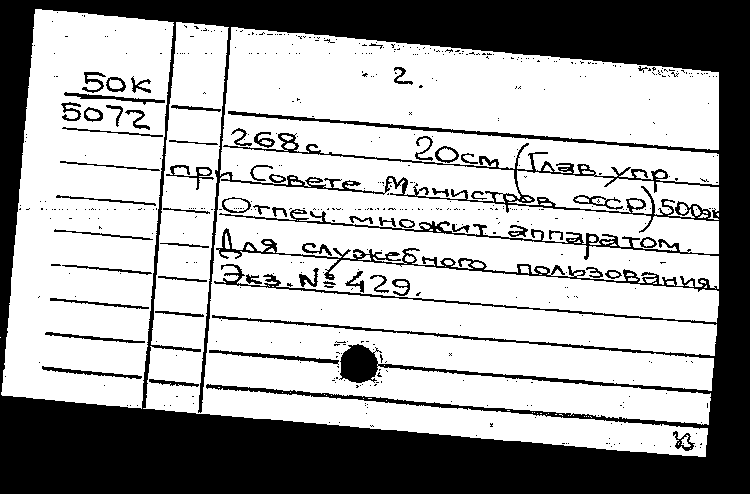 2.
50К
5072
268 с. 20см. (Глав. упр.
при Совете Министров СССР) 500эк
Отпеч. множит. аппаратом.
Для служебного пользования.
Экз. № 429.